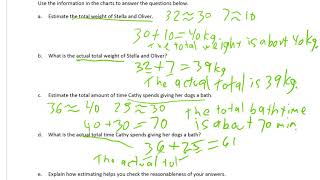 Use the information in the charts to answer the questions below.
a. Estimate the total weight of Stella and Oliver. 32≈30 7≈10
30+10=40kg.
The total weight is about 40kg.
b. What is the actual total weight of Stella and Oliver?
32+7=39kg
The actual total is 39kg.
c. Estimate the total amount of time Cathy spends giving her dogs a bath
36≈40 25≈30 The total bathtime
40+30=70 is about 70 min.
d. What is the actual total time Cathy spends giving her dogs a bath?
36+25=61
The actual tot
e. Explain how estimating helps you check the reasonableness of your answers.